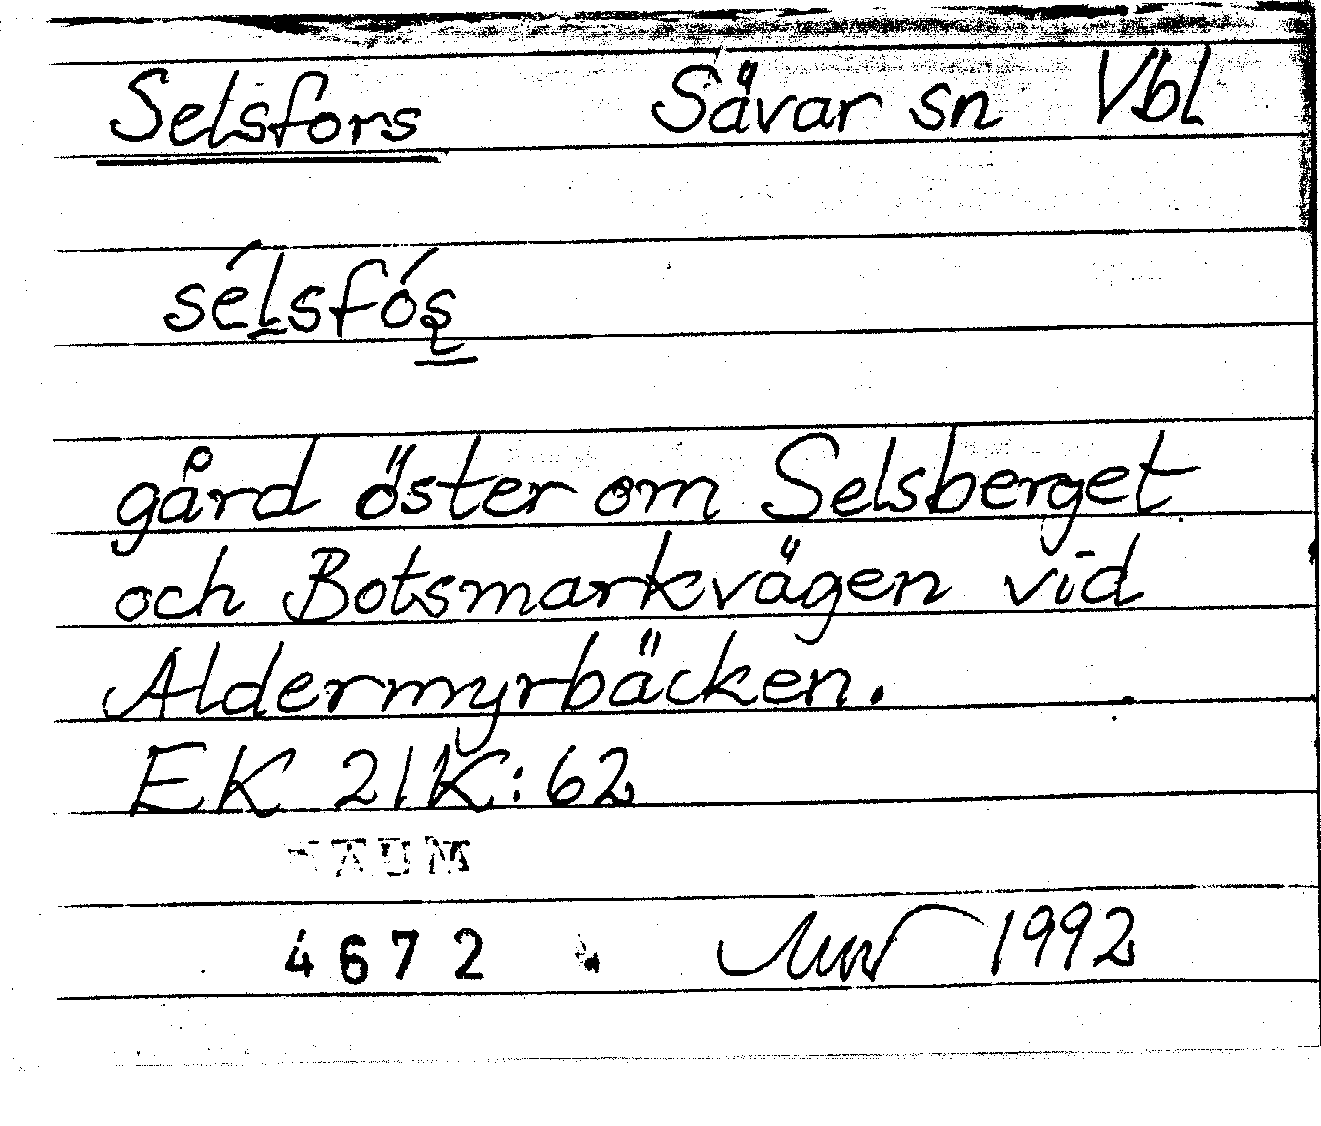 Selsfors Sävar sn Vbl
sélsfóʂ
gård öster om Selsberget
och Botsmarkvägen vid
Aldermyrbäcken.
EK 21K:62
4672 1992